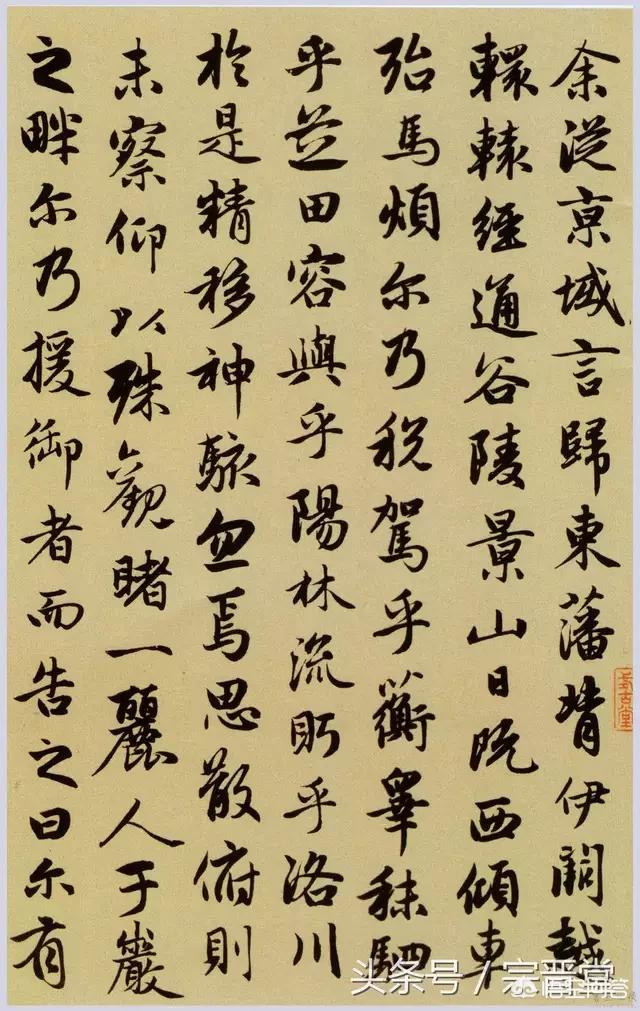 余從京域言歸東藩背伊闕越
轘轅經通谷陵景山日既西傾車
殆馬煩尔乃稅駕乎蘅皋秣駟
乎芝田容與乎陽林流眄乎洛川
於是精移神駭忽焉思散俯則
未察仰以殊觀睹一麗人于巖
之畔尔乃援御者而告之曰尔有
头条号／宗晋堂
悟空问答